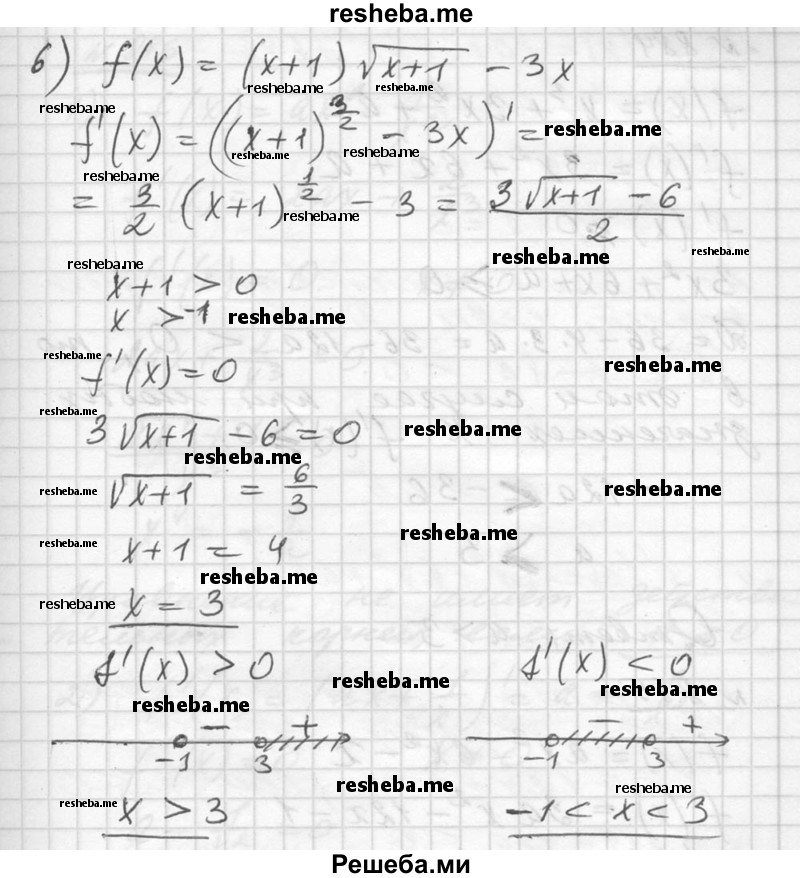 resheba.me
б) f(x) = (x+1)√x+1 - 3x
resheba.me resheba.me
resheba.me
f'(x) = ((x+1)^(3/2) - 3x)' = resheba.me
resheba.me resheba.me
resheba.me
= 3/2 (x+1)^(1/2) - 3 = (3√x+1 - 6)/2
resheba.me
resheba.me resheba.me
resheba.me
x+1 > 0
x > -1 resheba.me
resheba.me resheba.me
f'(x) = 0
resheba.me
3√x+1 - 6 = 0 resheba.me
resheba.me
resheba.me √x+1 = 6/3 resheba.me
resheba.me
resheba.me x+1 = 4
resheba.me
resheba.me x = 3
f'(x) > 0 f'(x) < 0
resheba.me resheba.me
resheba.me
- + - +
-1 3 -1 3
resheba.me resheba.me
resheba.me x > 3 -1 < x < 3
Решеба.ми